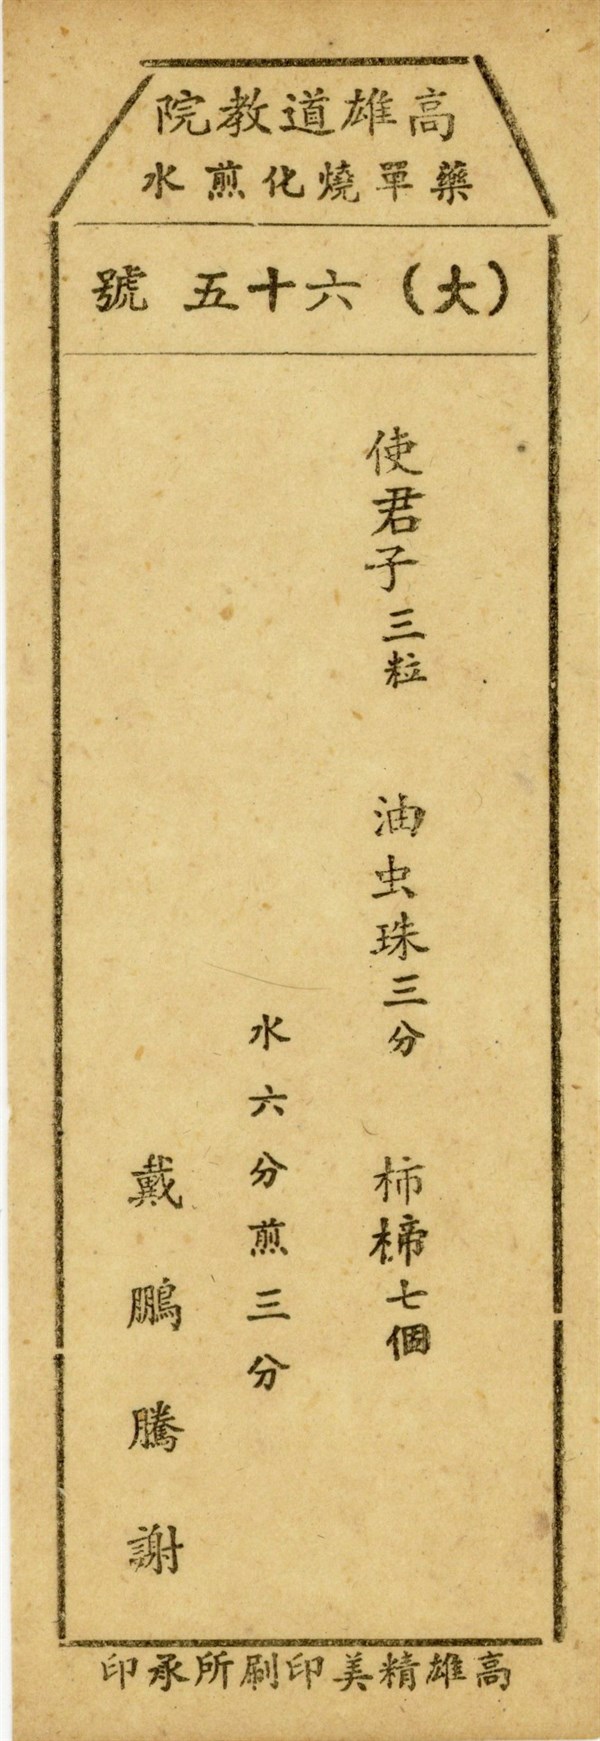 高雄道教院
藥單燒化煎水
（大）六十五號
使君子三粒　油虫珠三分　柿楴七個
水六分煎三分
戴鵬騰謝
高雄精美印刷所承印